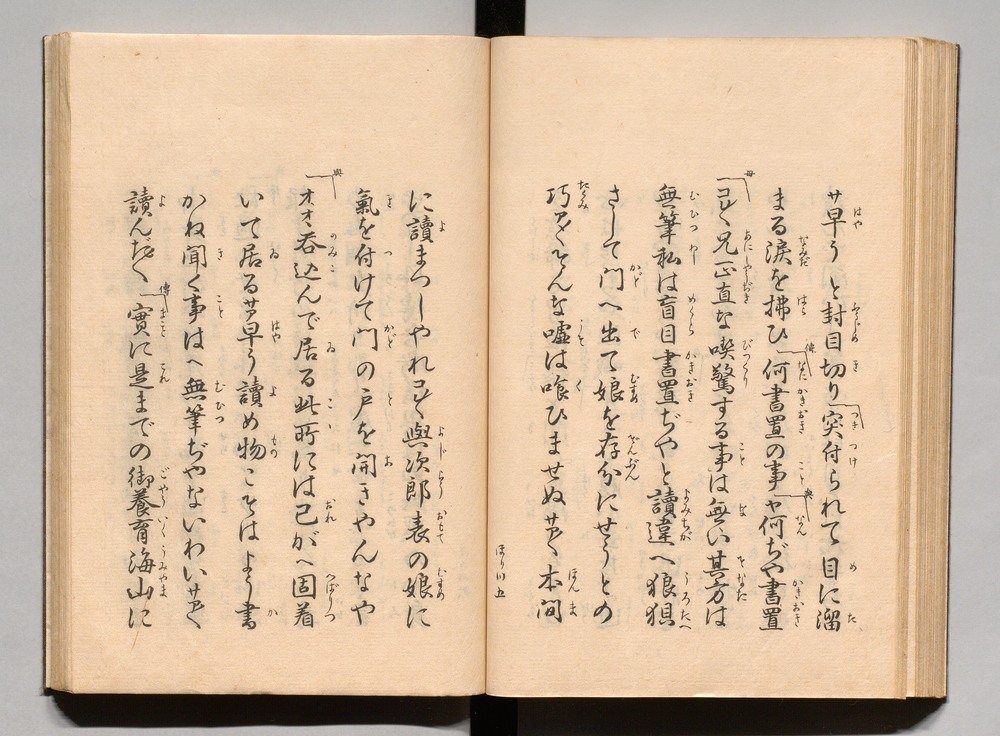 サ早うと封目切り突付られて目に溜
まる涙を拂ひ何書置の事ヤ何ぢや書置
コレ〳〵兄正直な喫驚する事は無い其方は
無筆私は盲目書置ぢやと讀違へ狼狽
さして門へ出て娘を存分にせうとの
巧〳〵そんな嘘は喰ひませぬサア〳〵本間
ほり川 五
に讀まつしやれコレ〳〵與次郎表の娘に
氣を付けて門の戸を開きやんなや
オオ呑込んで居る此所には己がへ固着
いて居るサア早う讀め物こそはよう書
かね聞く事はへ無筆ぢやないわいサア〳〵
讀んだ〳〵實に是までの御養育海山に